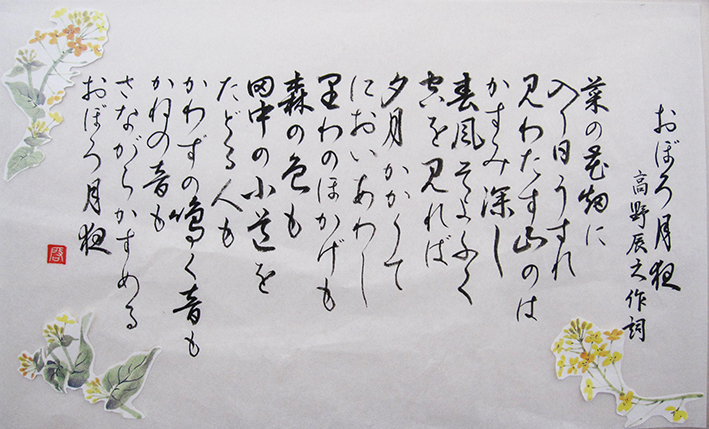 おぼろ月夜
高野辰之作詞
菜の花畑に
入り日うすれ
見わたす山のは
かすみ深し
春風そよふく
空を見れば
夕月かかりて
においあわし
里わのほかげも
森の色も
田中の小道を
たどる人も
かわずの鳴く音も
かねの音も
さながらかすめる
おぼろ月夜